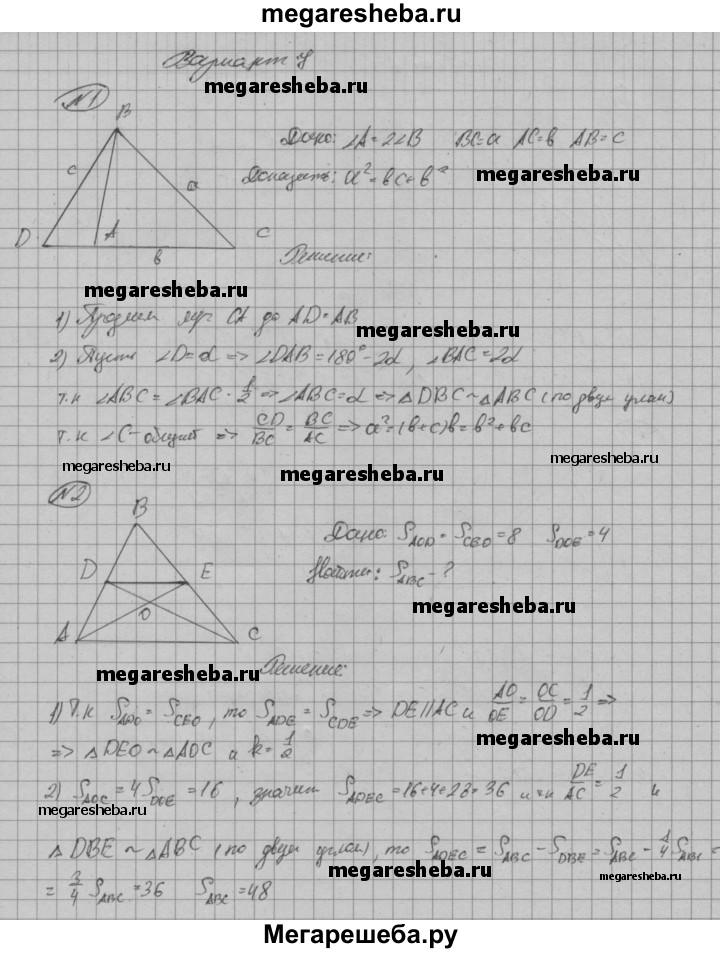 megaresheba.ru
Вариант 4
megaresheba.ru
№1
B
c
a
D
A
C
b
Дано: ∠A=2∠B BC=a AC=b AB=c
Доказать: a²=bc+b²
megaresheba.ru
Решение:
megaresheba.ru
1) Продлим луч CA до AD=AB
megaresheba.ru
2) Пусть ∠D=α => ∠DAB=180°-2α, ∠BAC=2α
т.к ∠ABC=∠BAC·1/2 => ∠ABC=α => △DBC~△ABC (по двум углам)
т.к ∠C-общий => CD/BC=BC/AC => a²=(b+c)b=b²+bc
megaresheba.ru
megaresheba.ru
megaresheba.ru
№2
B
D
E
O
A
C
Дано: S_AOD=S_CEO=8 S_DOE=4
Найти: S_ABC-?
megaresheba.ru
megaresheba.ru
Решение:
1) Т.к S_ADO=S_CEO, то S_ADE=S_CDE => DE||AC и AO/OE=OC/OD=1/2 =>
=> △DEO~△AOC и k=1/2
megaresheba.ru
2) S_AOC=4S_DOE=16, значит S_ADEC=16+4+28=36 и т.к DE/AC=1/2 и
megaresheba.ru
△DBE~△ABC (по двум углам), то S_ADEC=S_ABC-S_DBE=S_ABC-1/4S_ABC=
=3/4 S_ABC=36 S_ABC=48
megaresheba.ru
megaresheba.ru
Мегарешеба.ру